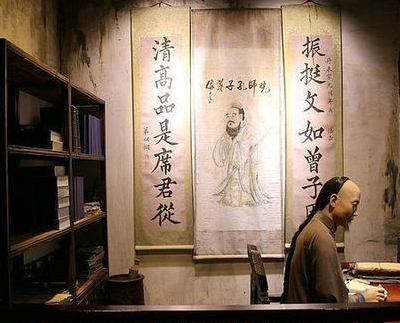 振挺文如曾子固
先師孔子尊像
清高品是席君從